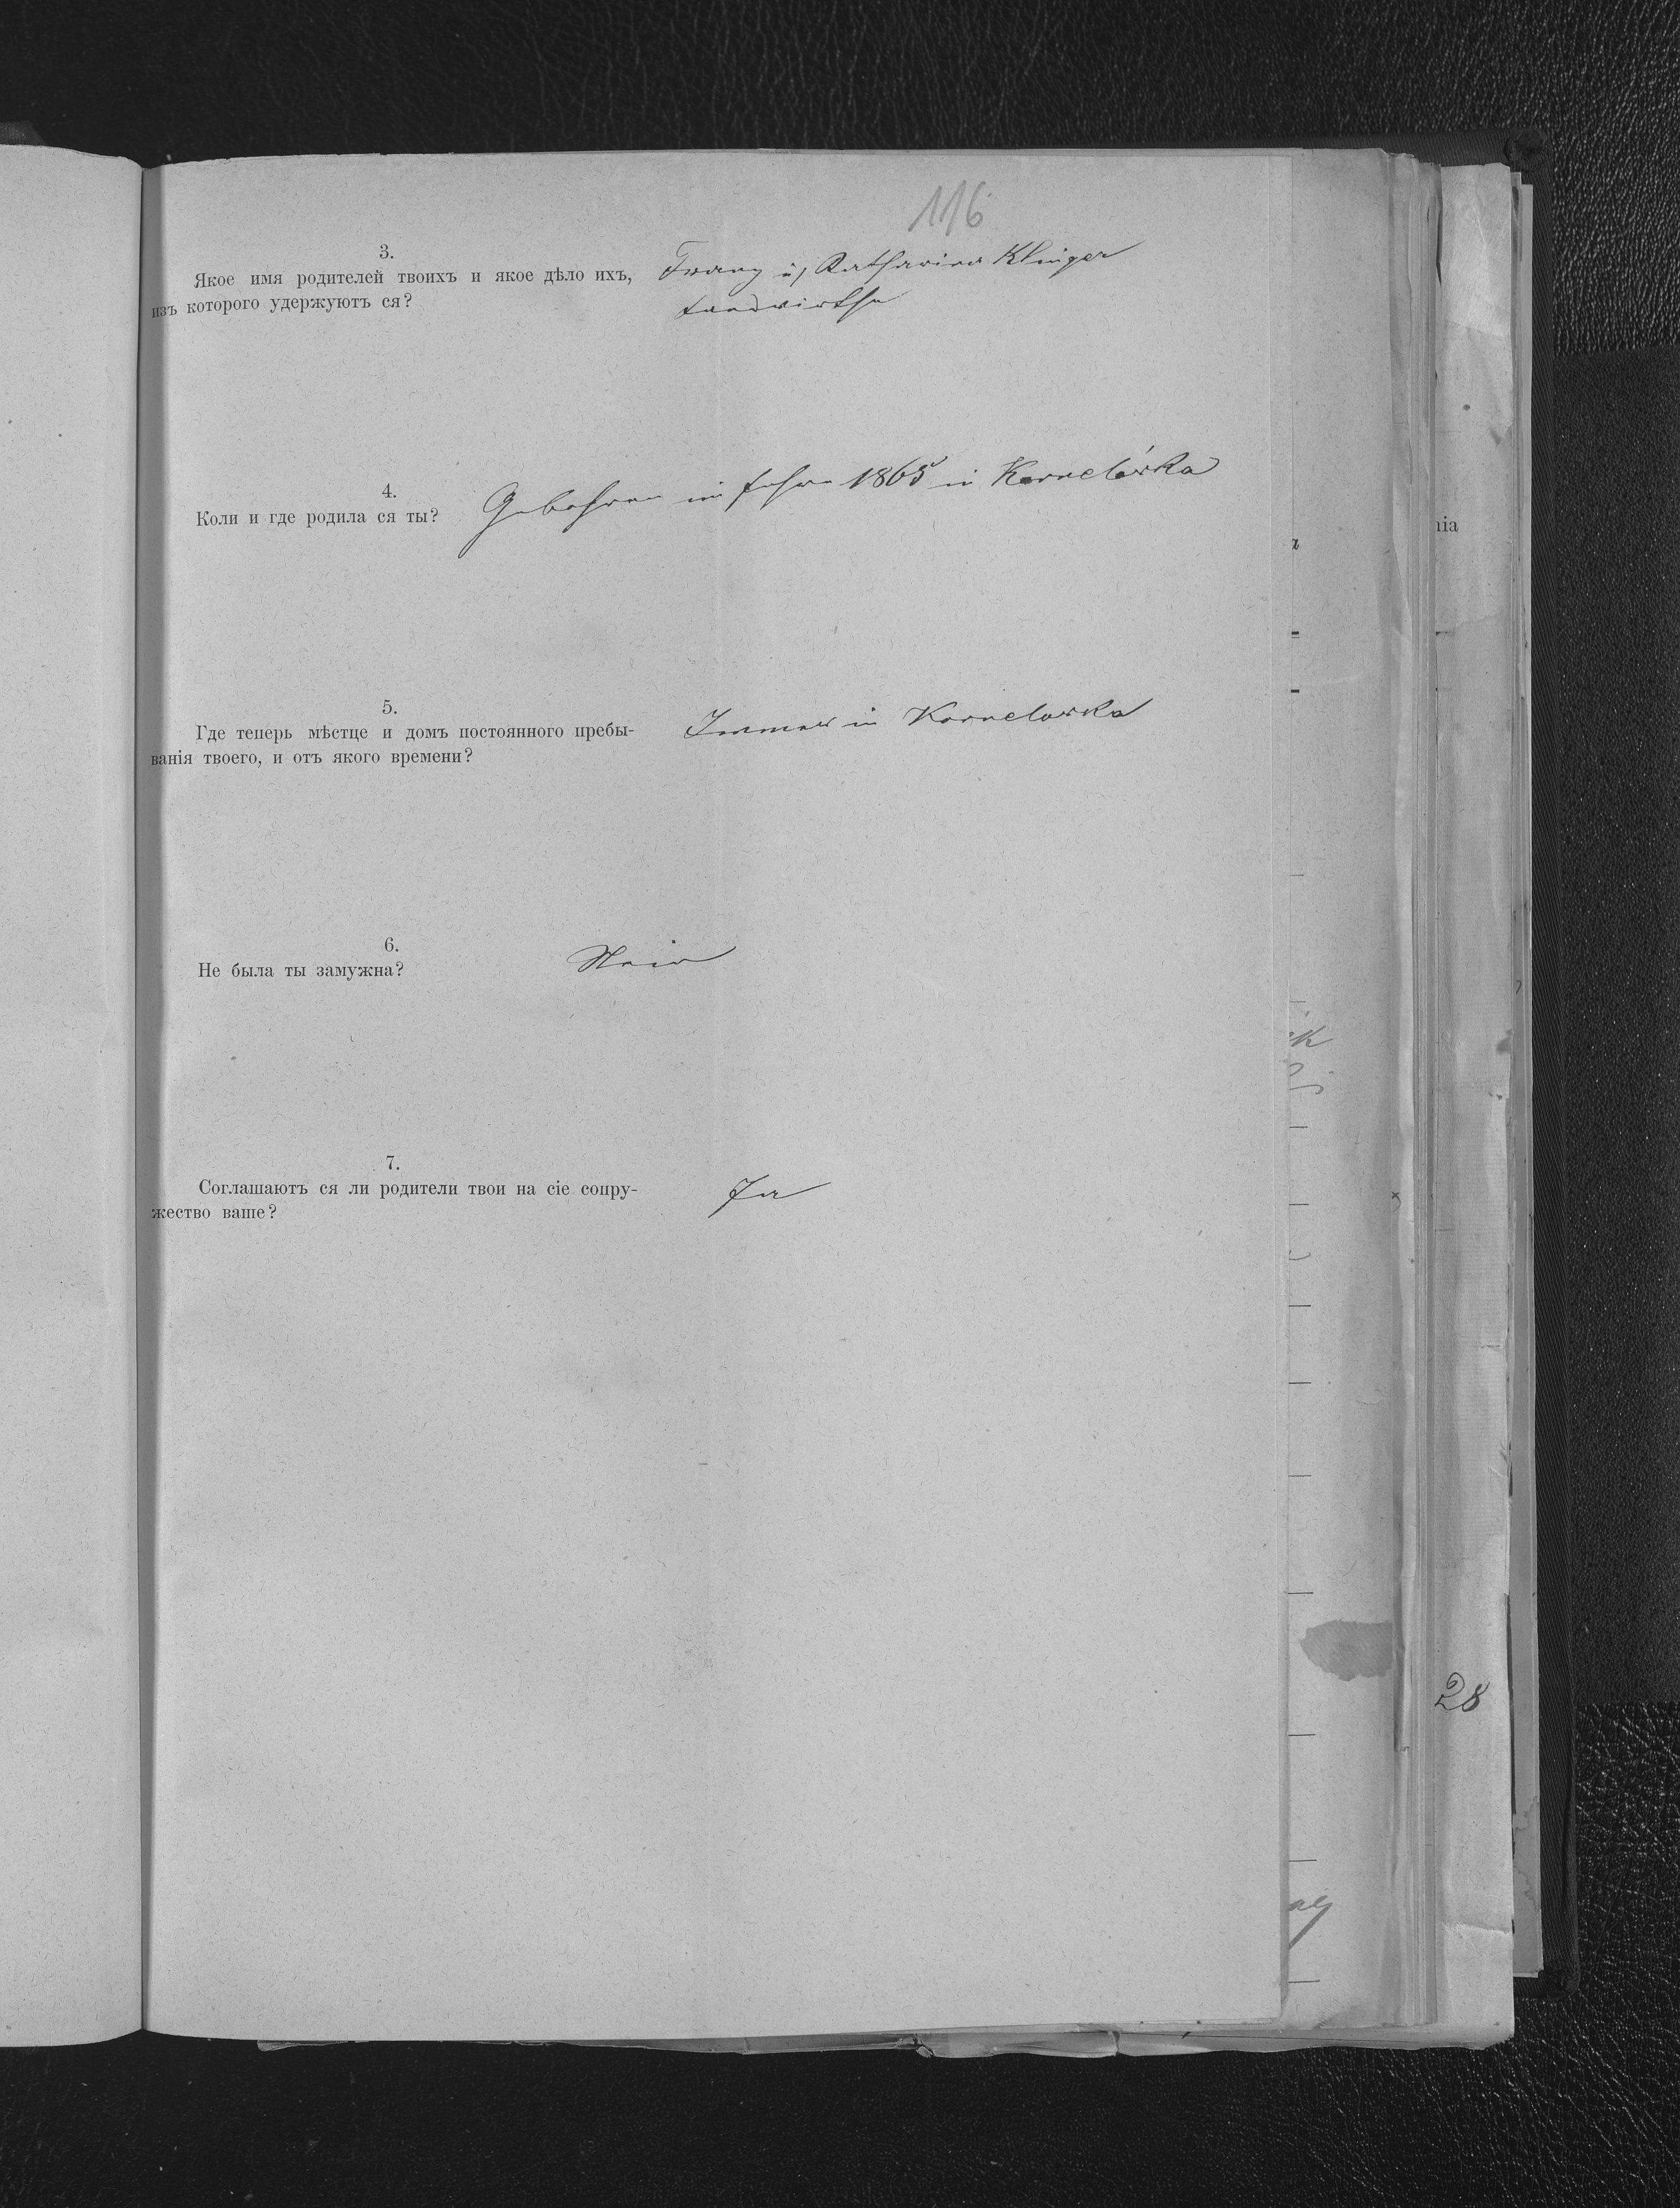 116
3.
Якое имя родителей твоихъ и якое дѣло ихъ,
изъ которого удержуютъ ся?
Franz u, Katharina Klinger
Landwirthe
4.
Коли и где родила ся ты?
Gebohren im Jahre 1865 in Kornelówka
5.
Где теперь мѣстце и домъ постоянного пребы-
ванія твоего, и отъ якого времени?
Immer in Kornelowka
6.
Не была ты замужна?
Nein
7.
Соглашаютъ ся ли родители твои на сіе супру-
жество ваше?
Ja
nia
28